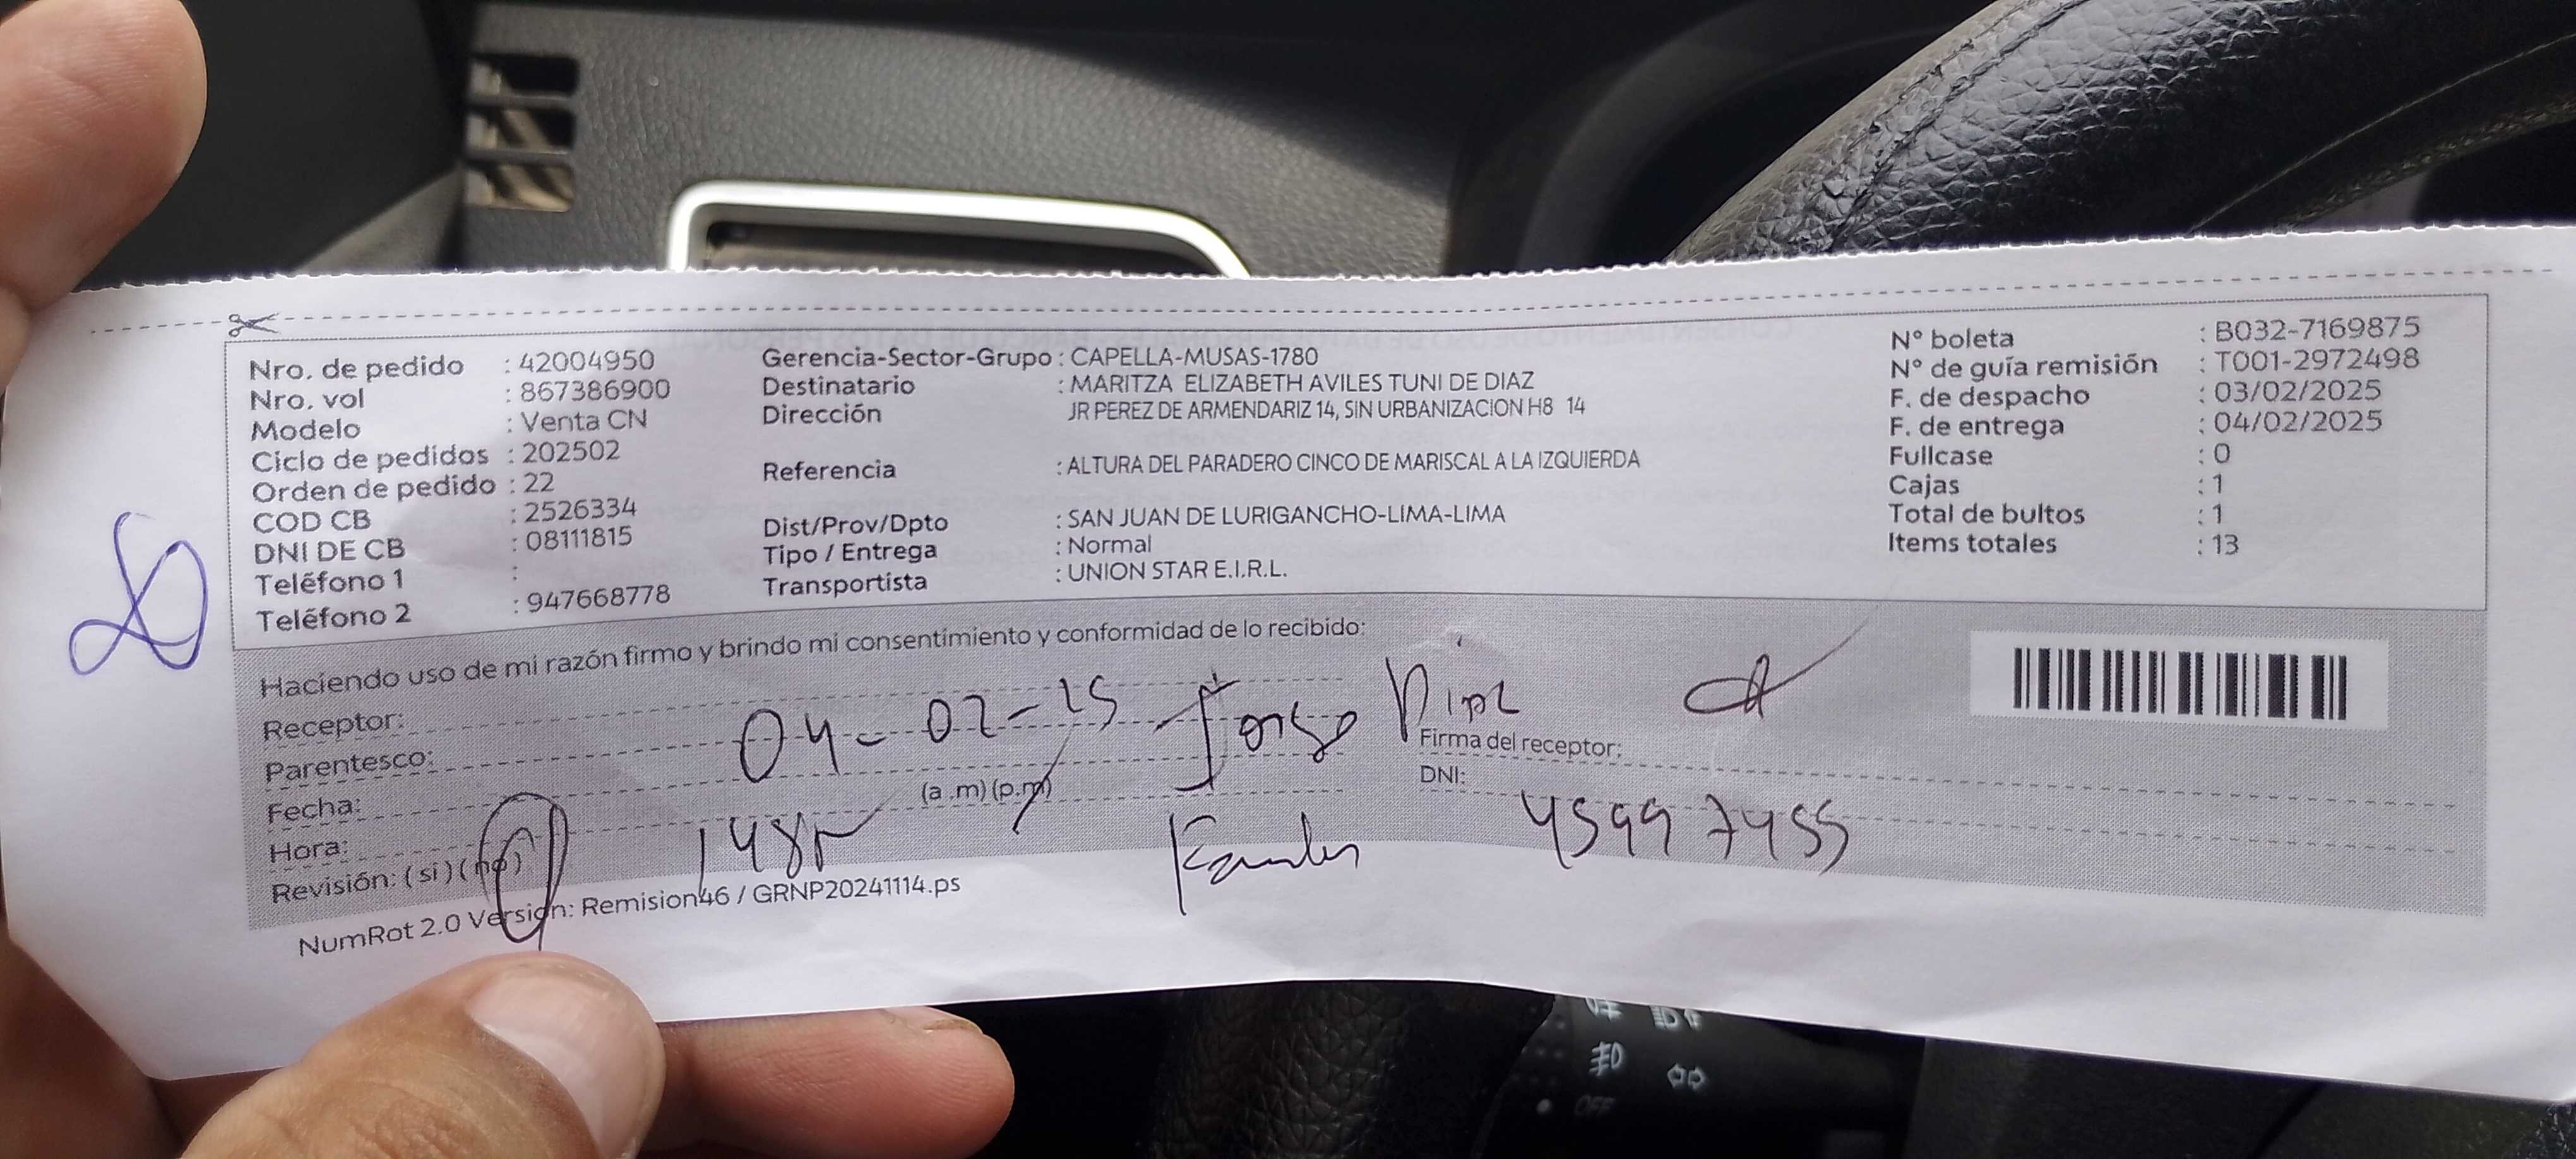 Nro. de pedido : 42004950
Nro. vol : 867386900
Modelo : Venta CN
Ciclo de pedidos : 202502
Orden de pedido : 22
COD CB : 2526334
DNI DE CB : 08111815
Teléfono 1 :
Teléfono 2 : 947668778
Gerencia-Sector-Grupo : CAPELLA-MUSAS-1780
Destinatario : MARITZA ELIZABETH AVILES TUNI DE DIAZ
Dirección JR PEREZ DE ARMENDARIZ 14, SIN URBANIZACION H8 14
Referencia : ALTURA DEL PARADERO CINCO DE MARISCAL A LA IZQUIERDA
Dist/Prov/Dpto : SAN JUAN DE LURIGANCHO-LIMA-LIMA
Tipo / Entrega : Normal
Transportista : UNION STAR E.I.R.L.
N° boleta : B032-7169875
N° de guía remisión : T001-2972498
F. de despacho : 03/02/2025
F. de entrega : 04/02/2025
Fullcase : 0
Cajas : 1
Total de bultos : 1
Items totales : 13
Haciendo uso de mi razón firmo y brindo mi consentimiento y conformidad de lo recibido:
Receptor:
Parentesco:
Fecha: 04-02-25
Hora: (a.m) (p.m)
Revisión: (si) (no)
Firma del receptor:
DNI: 45997455
NumRot 2.0 Version: Remision46 / GRNP20241114.ps
OFF